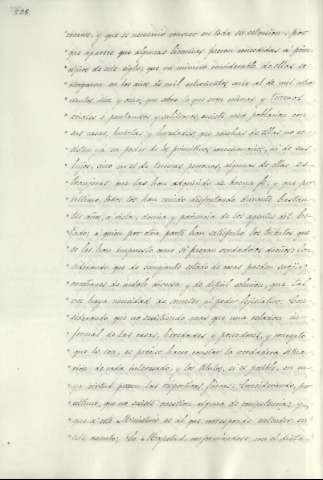 208
"cerse, y que es necesario conocer en toda su estension: por-
"que aparece que algunas licencias fueron concedidas á prin-
"cipios de este siglo; que un número considerable de ellas se
"otorgaron en los años de mil ochocientos once al de mil ocho-
"cientos diez y seis; que sobre lo que eran minas y terrenos
"eriales ó pantanosos y salobres, existe una poblacion con
"sus casas, huertas y heredades que muchas de ellas no ec-
"sisten ya en poder de los primitivos concesionarios, ni de sus
"hijos, sino en el de terceras personas, algunas de ellas es-
"trangeras que las han adquirido de buena fé, y que por
"último, todos los han venido disfrutando durante bastan-
"tes años, á vista, ciencia y paciencia de los agentes del Es-
"tado, á quien por otra parte han satisfecho los tributos que
"se les han impuesto como si fueran verdaderos dueños: Con-
"siderando que de semejante estado de cosas pueden surgir
"cuestiones de índole diversa y de dificil solucion, que tal
"vez haya necesidad de someter al poder legislativo: Con-
"siderando que no existiendo mas que una relacion in-
"formal de las casas, heredades y poseedores, y
"que lo son, es preciso hacer constar la verdadera situa-
"cion de cada interesado, y los títulos, si es posible, en cu-
"ya virtud posee las respectivas fincas: Considerando, por
"último, que no existe cuestion alguna de competencia, y
"que á este Ministerio es al que corresponde entender en
"este asunto; Su Magestad, conformándose con el dictá-